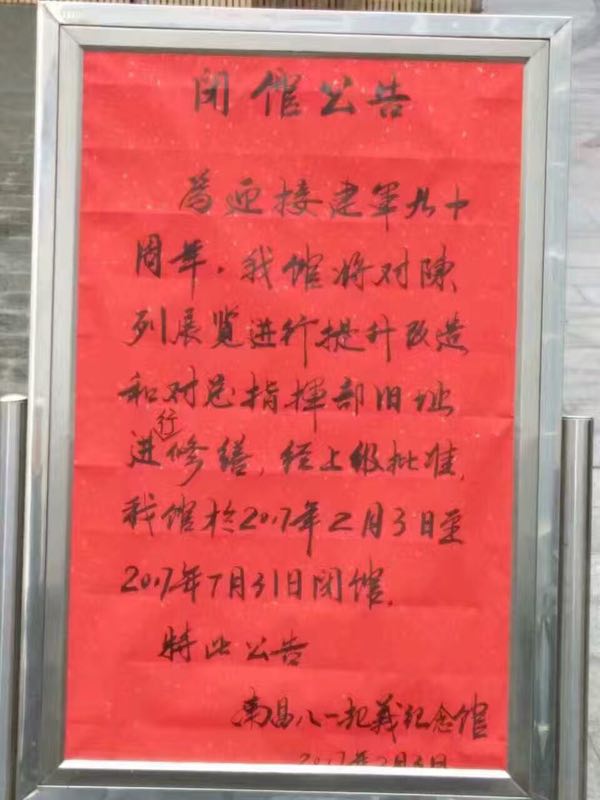 闭馆公告
为迎接建军九十
周年，我馆将对陳
列展览进行提升改造
和对总指揮部旧址
进行修缮，经上级批准，
我馆於2017年2月3日至
2017年7月31日闭馆．
特此公告
南昌八一起義纪念馆
2017年2月3日